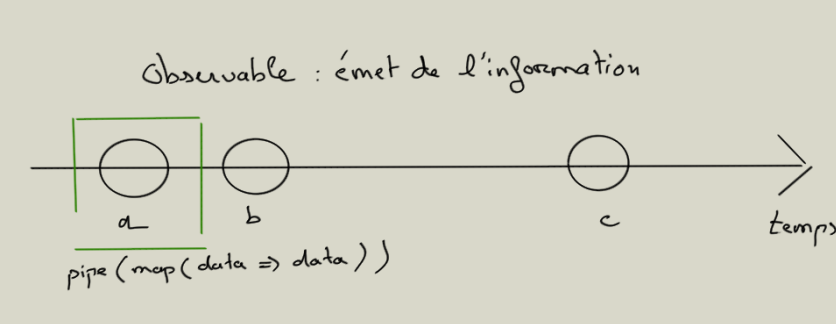 Observable : émet de l'information
a b c
temps
pipe (map( data => data ))